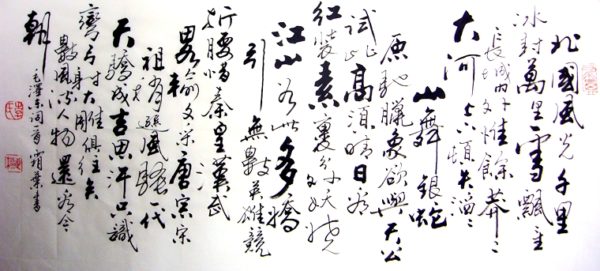 北國風光千里
冰封萬里雪飄
長城內外惟餘莽々
大河上下頓失滔々
山舞銀蛇
原馳臘象欲與天公
試比高須晴日看
紅裝素裹分外妖嬈
江山如此多嬌
引無數英雄競
折腰惜秦皇漢武
略輸文采唐宗宋
祖稍遜風騷一代
天驕成吉思汗只識
彎弓射大雕俱往矣
數風流人物還看今
朝
毛澤東詞